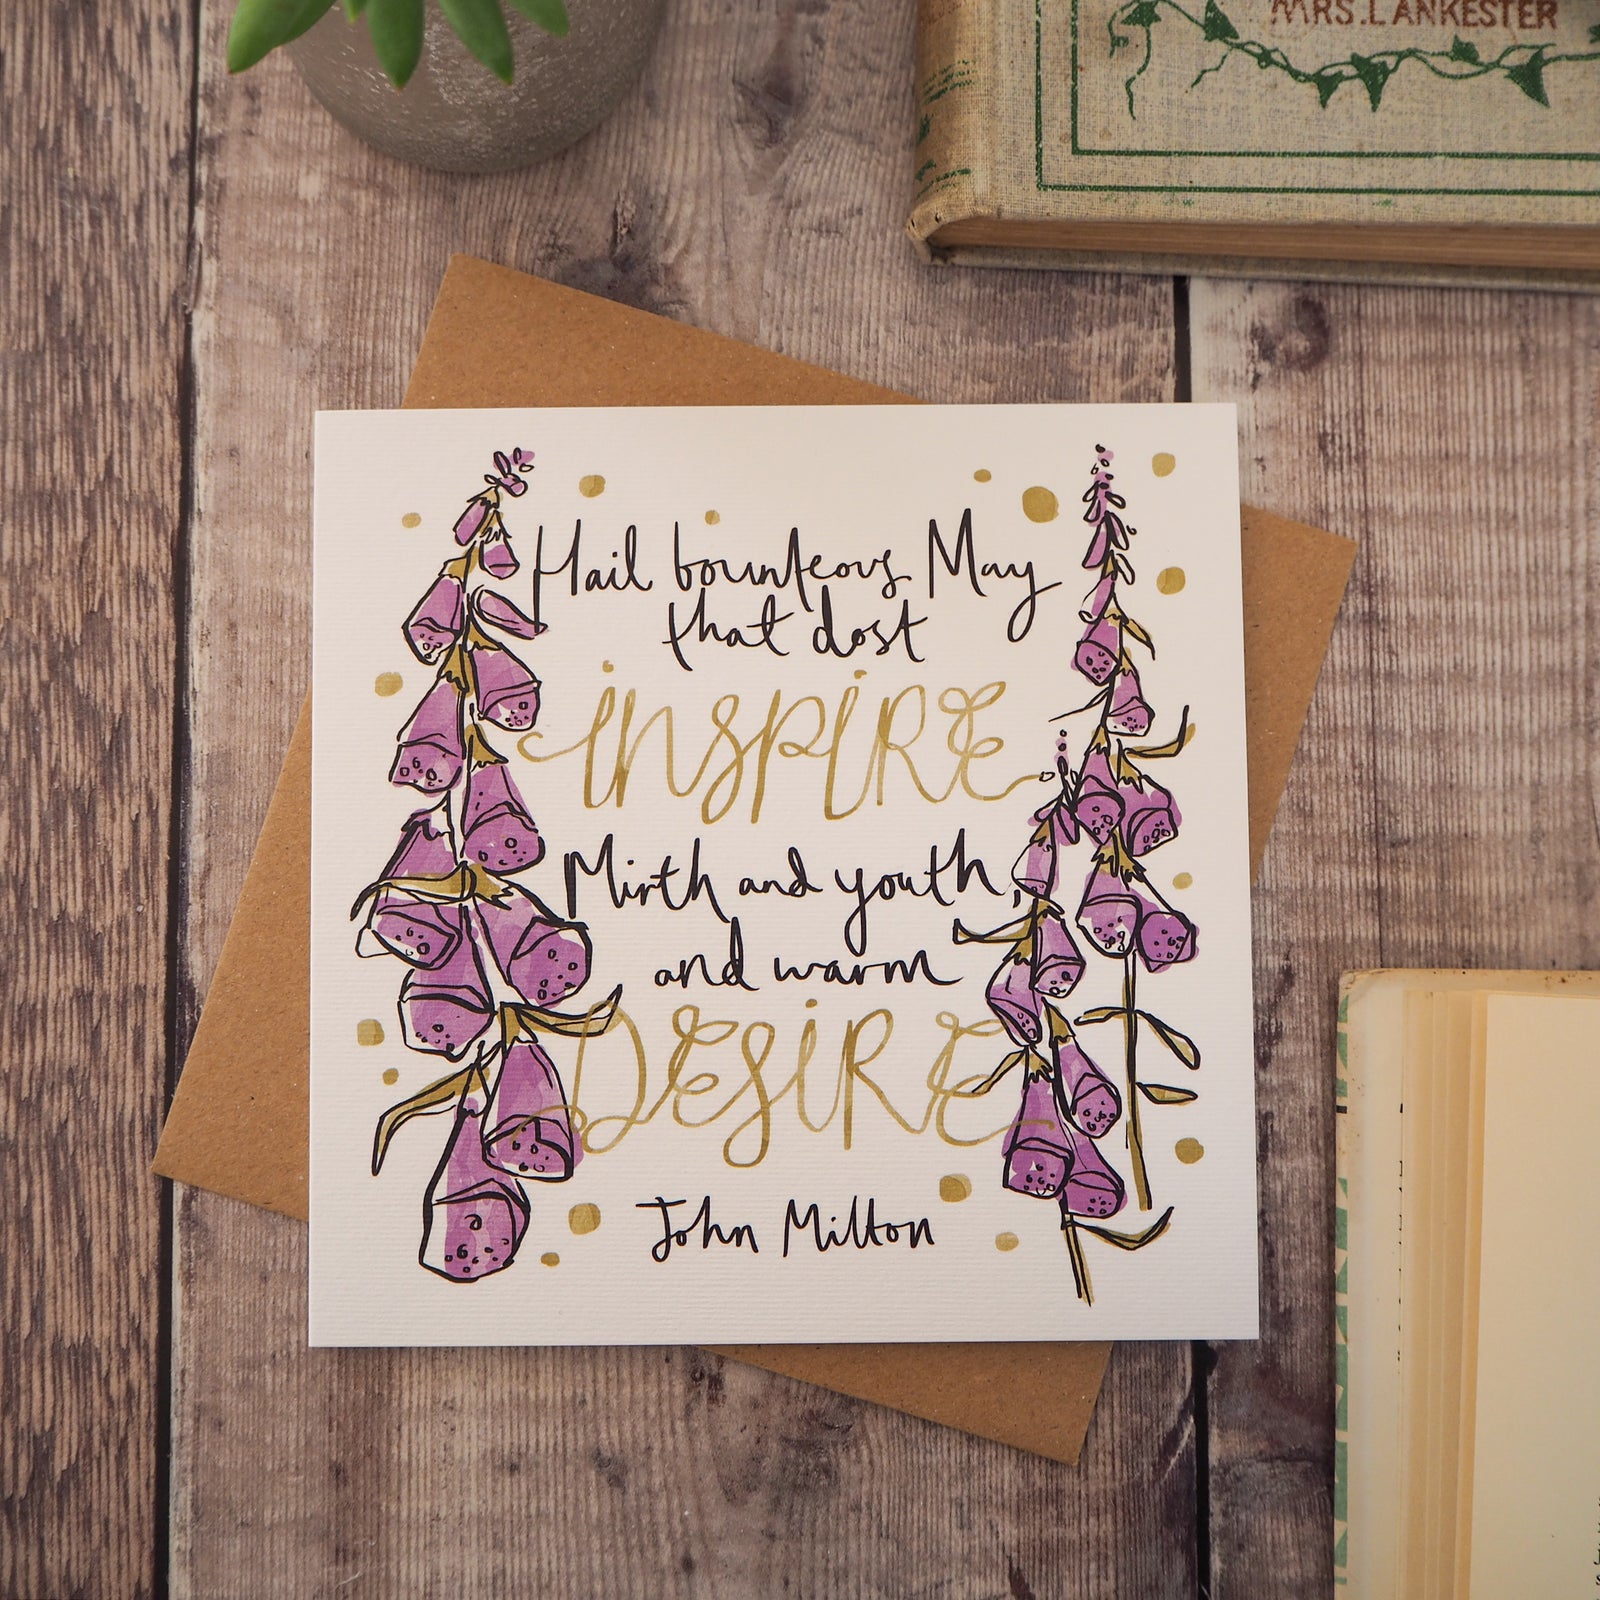 MRS. LANKESTER
Hail bounteous May
that dost
INSPIRE
Mirth and youth,
and warm
DESIRE
John Milton